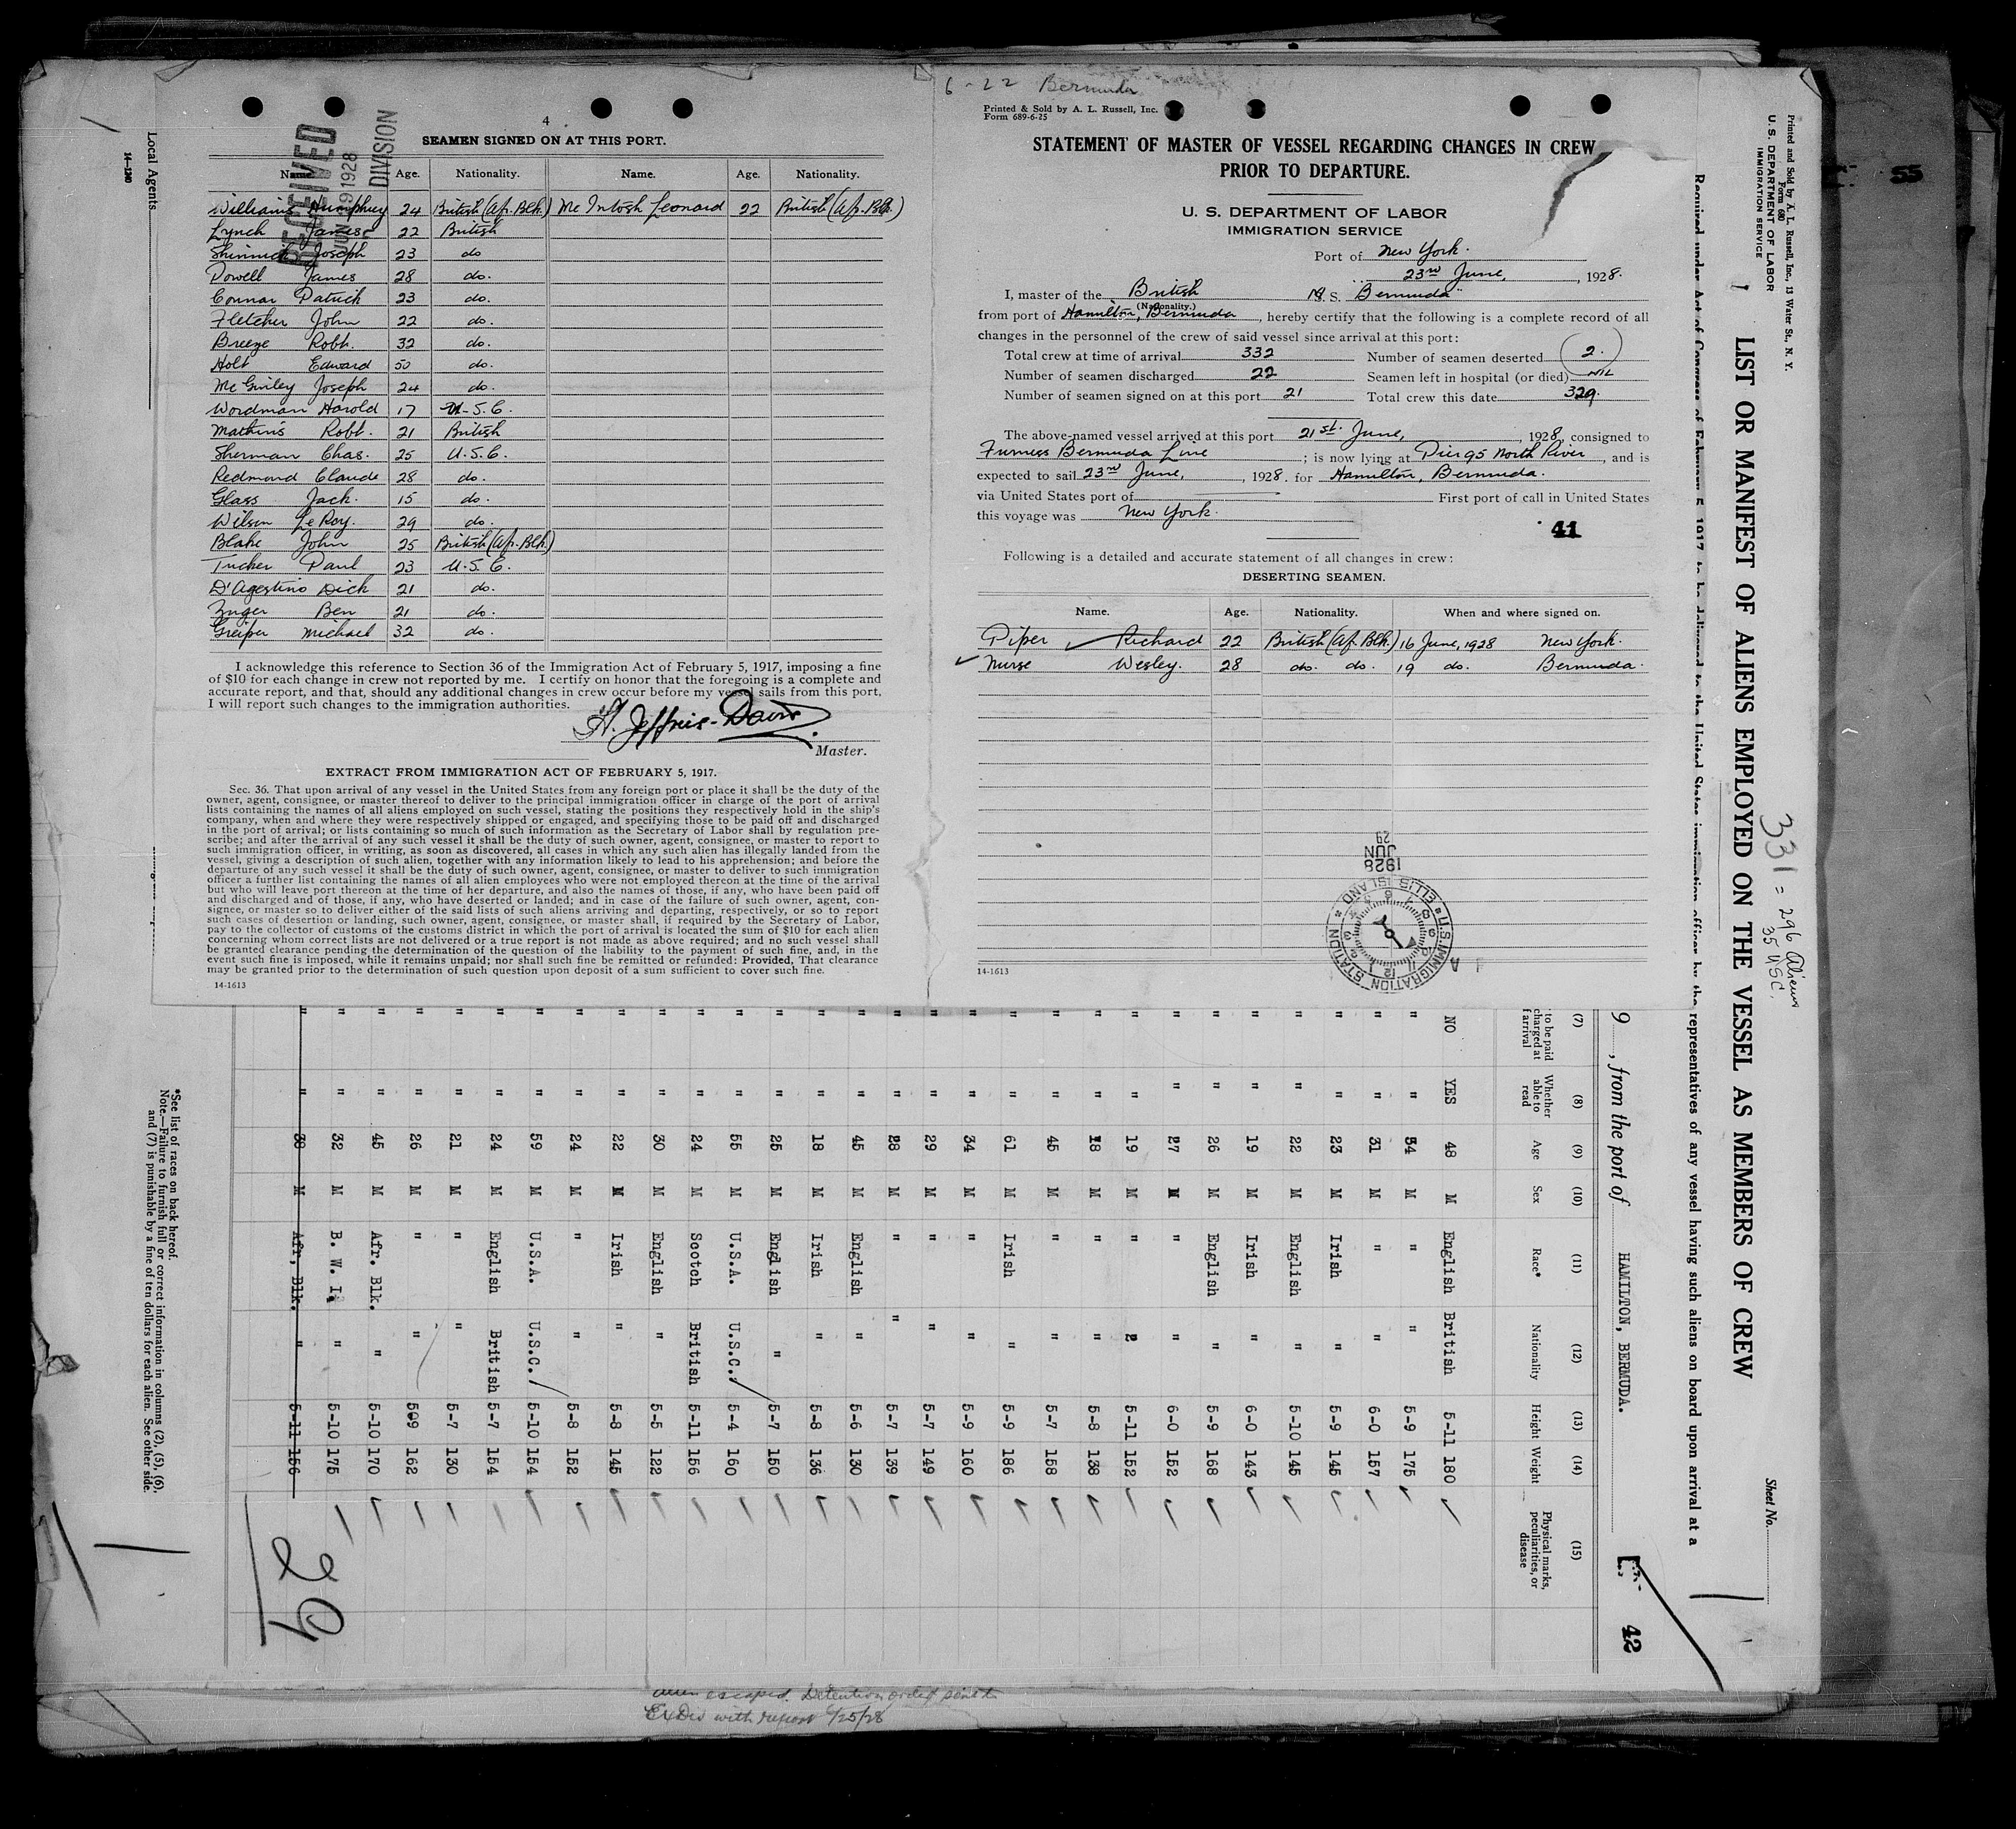 4
SEAMEN SIGNED ON AT THIS PORT.
RECEIVED
1928
DIVISION
Name. Age. Nationality. Name. Age. Nationality.
Williams Humphrey 24 British (Af. Blk.) McIntosh Leonard 22 British (Af. Blk.)
Lynch James 22 British
Joseph 23 do
Powell James 28 do.
Connar Patrick 23 do.
Fletcher John 22 do.
Breeze Robt. 32 do.
Holt Edward 50 do.
McGinley Joseph 24 do.
Wordman Harold 17 U.S.C.
Mathins Robt. 21 British
Sherman Chas. 25 U.S.C.
Redmond Claude 28 do.
Glass Jack. 15 do.
Wilson LeRoy. 29 do.
Blake John 25 British (Af. Blk.)
Tucker Paul 23 U.S.C.
D'Agestino Dick 21 do.
Zuger Ben 21 do.
Greiper Michael 32 do.
I acknowledge this reference to Section 36 of the Immigration Act of February 5, 1917, imposing a fine
of $10 for each change in crew not reported by me. I certify on honor that the foregoing is a complete and
accurate report, and that, should any additional changes in crew occur before my vessel sails from this port,
I will report such changes to the immigration authorities.
H. Jeffries-Davis
Master.
EXTRACT FROM IMMIGRATION ACT OF FEBRUARY 5, 1917.
Sec. 36. That upon arrival of any vessel in the United States from any foreign port or place it shall be the duty of the
owner, agent, consignee, or master thereof to deliver to the principal immigration officer in charge of the port of arrival
lists containing the names of all aliens employed on such vessel, stating the positions they respectively hold in the ship's
company, when and where they were respectively shipped or engaged, and specifying those to be paid off and discharged
in the port of arrival; or lists containing so much of such information as the Secretary of Labor shall by regulation pre-
scribe; and after the arrival of any such vessel it shall be the duty of such owner, agent, consignee, or master to report to
such immigration officer, in writing, as soon as discovered, all cases in which any such alien has illegally landed from the
vessel, giving a description of such alien, together with any information likely to lead to his apprehension; and before the
departure of any such vessel it shall be the duty of such owner, agent, consignee, or master to deliver to such immigration
officer a further list containing the names of all alien employees who were not employed thereon at the time of the arrival
but who will leave port thereon at the time of her departure, and also the names of those, if any, who have been paid off
and discharged and of those, if any, who have deserted or landed; and in case of the failure of such owner, agent, con-
signee, or master so to deliver either of the said lists of such aliens arriving and departing, respectively, or so to report
such cases of desertion or landing, such owner, agent, consignee, or master shall, if required by the Secretary of Labor,
pay to the collector of customs of the customs district in which the port of arrival is located the sum of $10 for each alien
concerning whom correct lists are not delivered or a true report is not made as above required; and no such vessel shall
be granted clearance pending the determination of the question of the liability to the payment of such fine, and, in the
event such fine is imposed, while it remains unpaid; nor shall such fine be remitted or refunded: Provided, That clearance
may be granted prior to the determination of such question upon deposit of a sum sufficient to cover such fine.
14-1613
6-22 Bermuda
Printed & Sold by A. L. Russell, Inc.
Form 689-6-25
STATEMENT OF MASTER OF VESSEL REGARDING CHANGES IN CREW
PRIOR TO DEPARTURE.
U. S. DEPARTMENT OF LABOR
IMMIGRATION SERVICE
Port of New York.
23rd June, , 1928.
I, master of the British M.S. "Bermuda"
(Nationality.)
from port of Hamilton, Bermuda , hereby certify that the following is a complete record of all
changes in the personnel of the crew of said vessel since arrival at this port:
Total crew at time of arrival 332 Number of seamen deserted 2.
Number of seamen discharged 22 Seamen left in hospital (or died) NIL
Number of seamen signed on at this port 21 Total crew this date 329.
The above-named vessel arrived at this port 21st. June, , 1928, consigned to
Furness Bermuda Line ; is now lying at Pier 95 North River , and is
expected to sail 23rd June, , 1928. for Hamilton, Bermuda.
via United States port of First port of call in United States
this voyage was New York.
41
Following is a detailed and accurate statement of all changes in crew:
DESERTING SEAMEN.
Name. Age. Nationality. When and where signed on.
Piper Richard 22 British (Af. Blk.) 16 June, 1928 New York.
Nurse Wesley. 28 do. do. 19 do. Bermuda.
1928
JUN
29
U.S. IMMIGRATION STATION ELLIS ISLAND
14-1613
Local Agents
14-1240
Printed and Sold by A. L. Russell, Inc., 13 Water St., N. Y.
Form 680
U. S. DEPARTMENT OF LABOR
IMMIGRATION SERVICE
LIST OR MANIFEST OF ALIENS EMPLOYED ON THE VESSEL AS MEMBERS OF CREW
Sheet No.
331 = 296 Aliens
35 USC.
Required under Act of Congress of February 5, 1917 to be delivered to the United States immigration officer by the representatives of any vessel having such aliens on board upon arrival at a
9 , from the port of HAMILTON, BERMUDA. 42
55
(7) (8) (9) (10) (11) (12) (13) (14) (15)
to be paid
charged at
f arrival
Whether
able to
read
Age Sex Race* Nationality Height Weight
Physical marks,
peculiarities, or
disease
NO YES 48 M English British 5-11 180
" " 34 M " " 5-9 175
" " 31 M " " 6-0 157
" " 23 M Irish " 5-9 145
" " 22 M English " 5-10 145
" " 19 M Irish " 6-0 143
" " 26 M English " 5-9 168
" " 27 M " " 6-0 152
" " 19 M " " 5-11 152
" " 18 M " " 5-8 138
" " 45 M " " 5-7 158
" " 61 M Irish " 5-9 186
" " 34 M " " 5-9 160
" " 29 M " " 5-7 149
" " 28 M " " 5-7 139
" " 45 M English " 5-6 130
" " 18 M Irish " 5-8 136
" " 25 M English " 5-7 150
" " 55 M U.S.A. U.S.C. 5-4 160
" " 24 M Scotch British 5-11 156
" " 30 M English " 5-5 122
" " 22 M Irish " 5-8 145
" " 24 M " " 5-8 152
" " 59 M U.S.A. U.S.C. 5-10 154
" " 24 M English British 5-7 154
" " 21 M " " 5-7 130
" " 26 M " " 509 162
" " 45 M Afr. Blk. " 5-10 170
" " 32 M B. W. I. " 5-10 175
" " 38 M Afr. Blk. " 5-11 156
29
*See list of races on back hereof.
Note.—Failure to furnish full or correct information in columns (2), (5), (6),
and (7) is punishable by a fine of ten dollars for each alien. See other side.
escaped. Detention order sent to
Ex Div with report 6/25/28